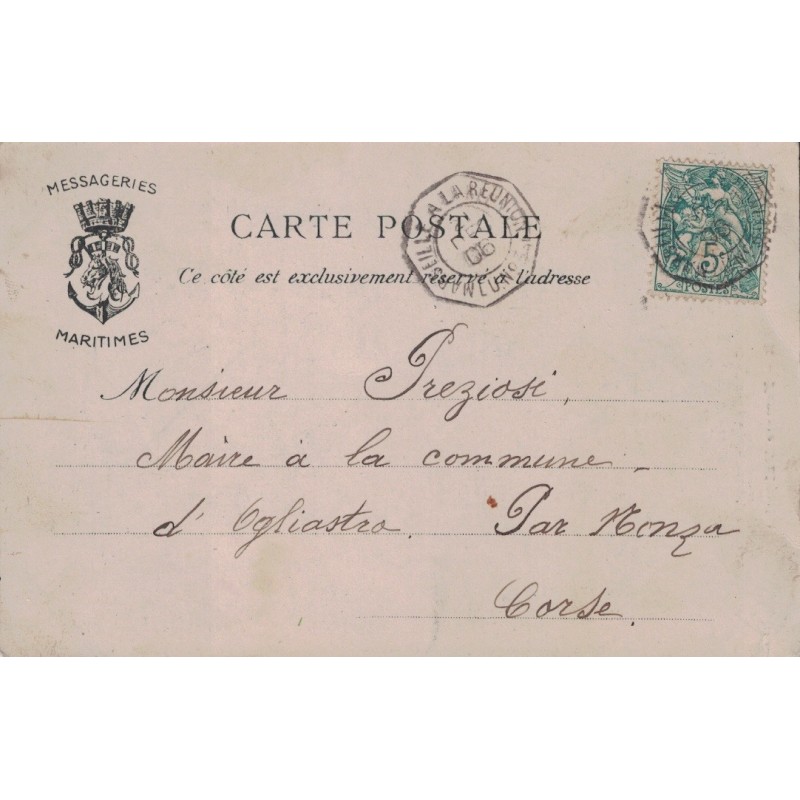 MESSAGERIES
MARITIMES
CARTE POSTALE
Ce côté est exclusivement réservé à l'adresse
MARSEILLE A LA REUNION
06
5
POSTES
Monsieur Preziosi,
Maire à la commune
d'Ogliastro. Par Nonza
Corse.